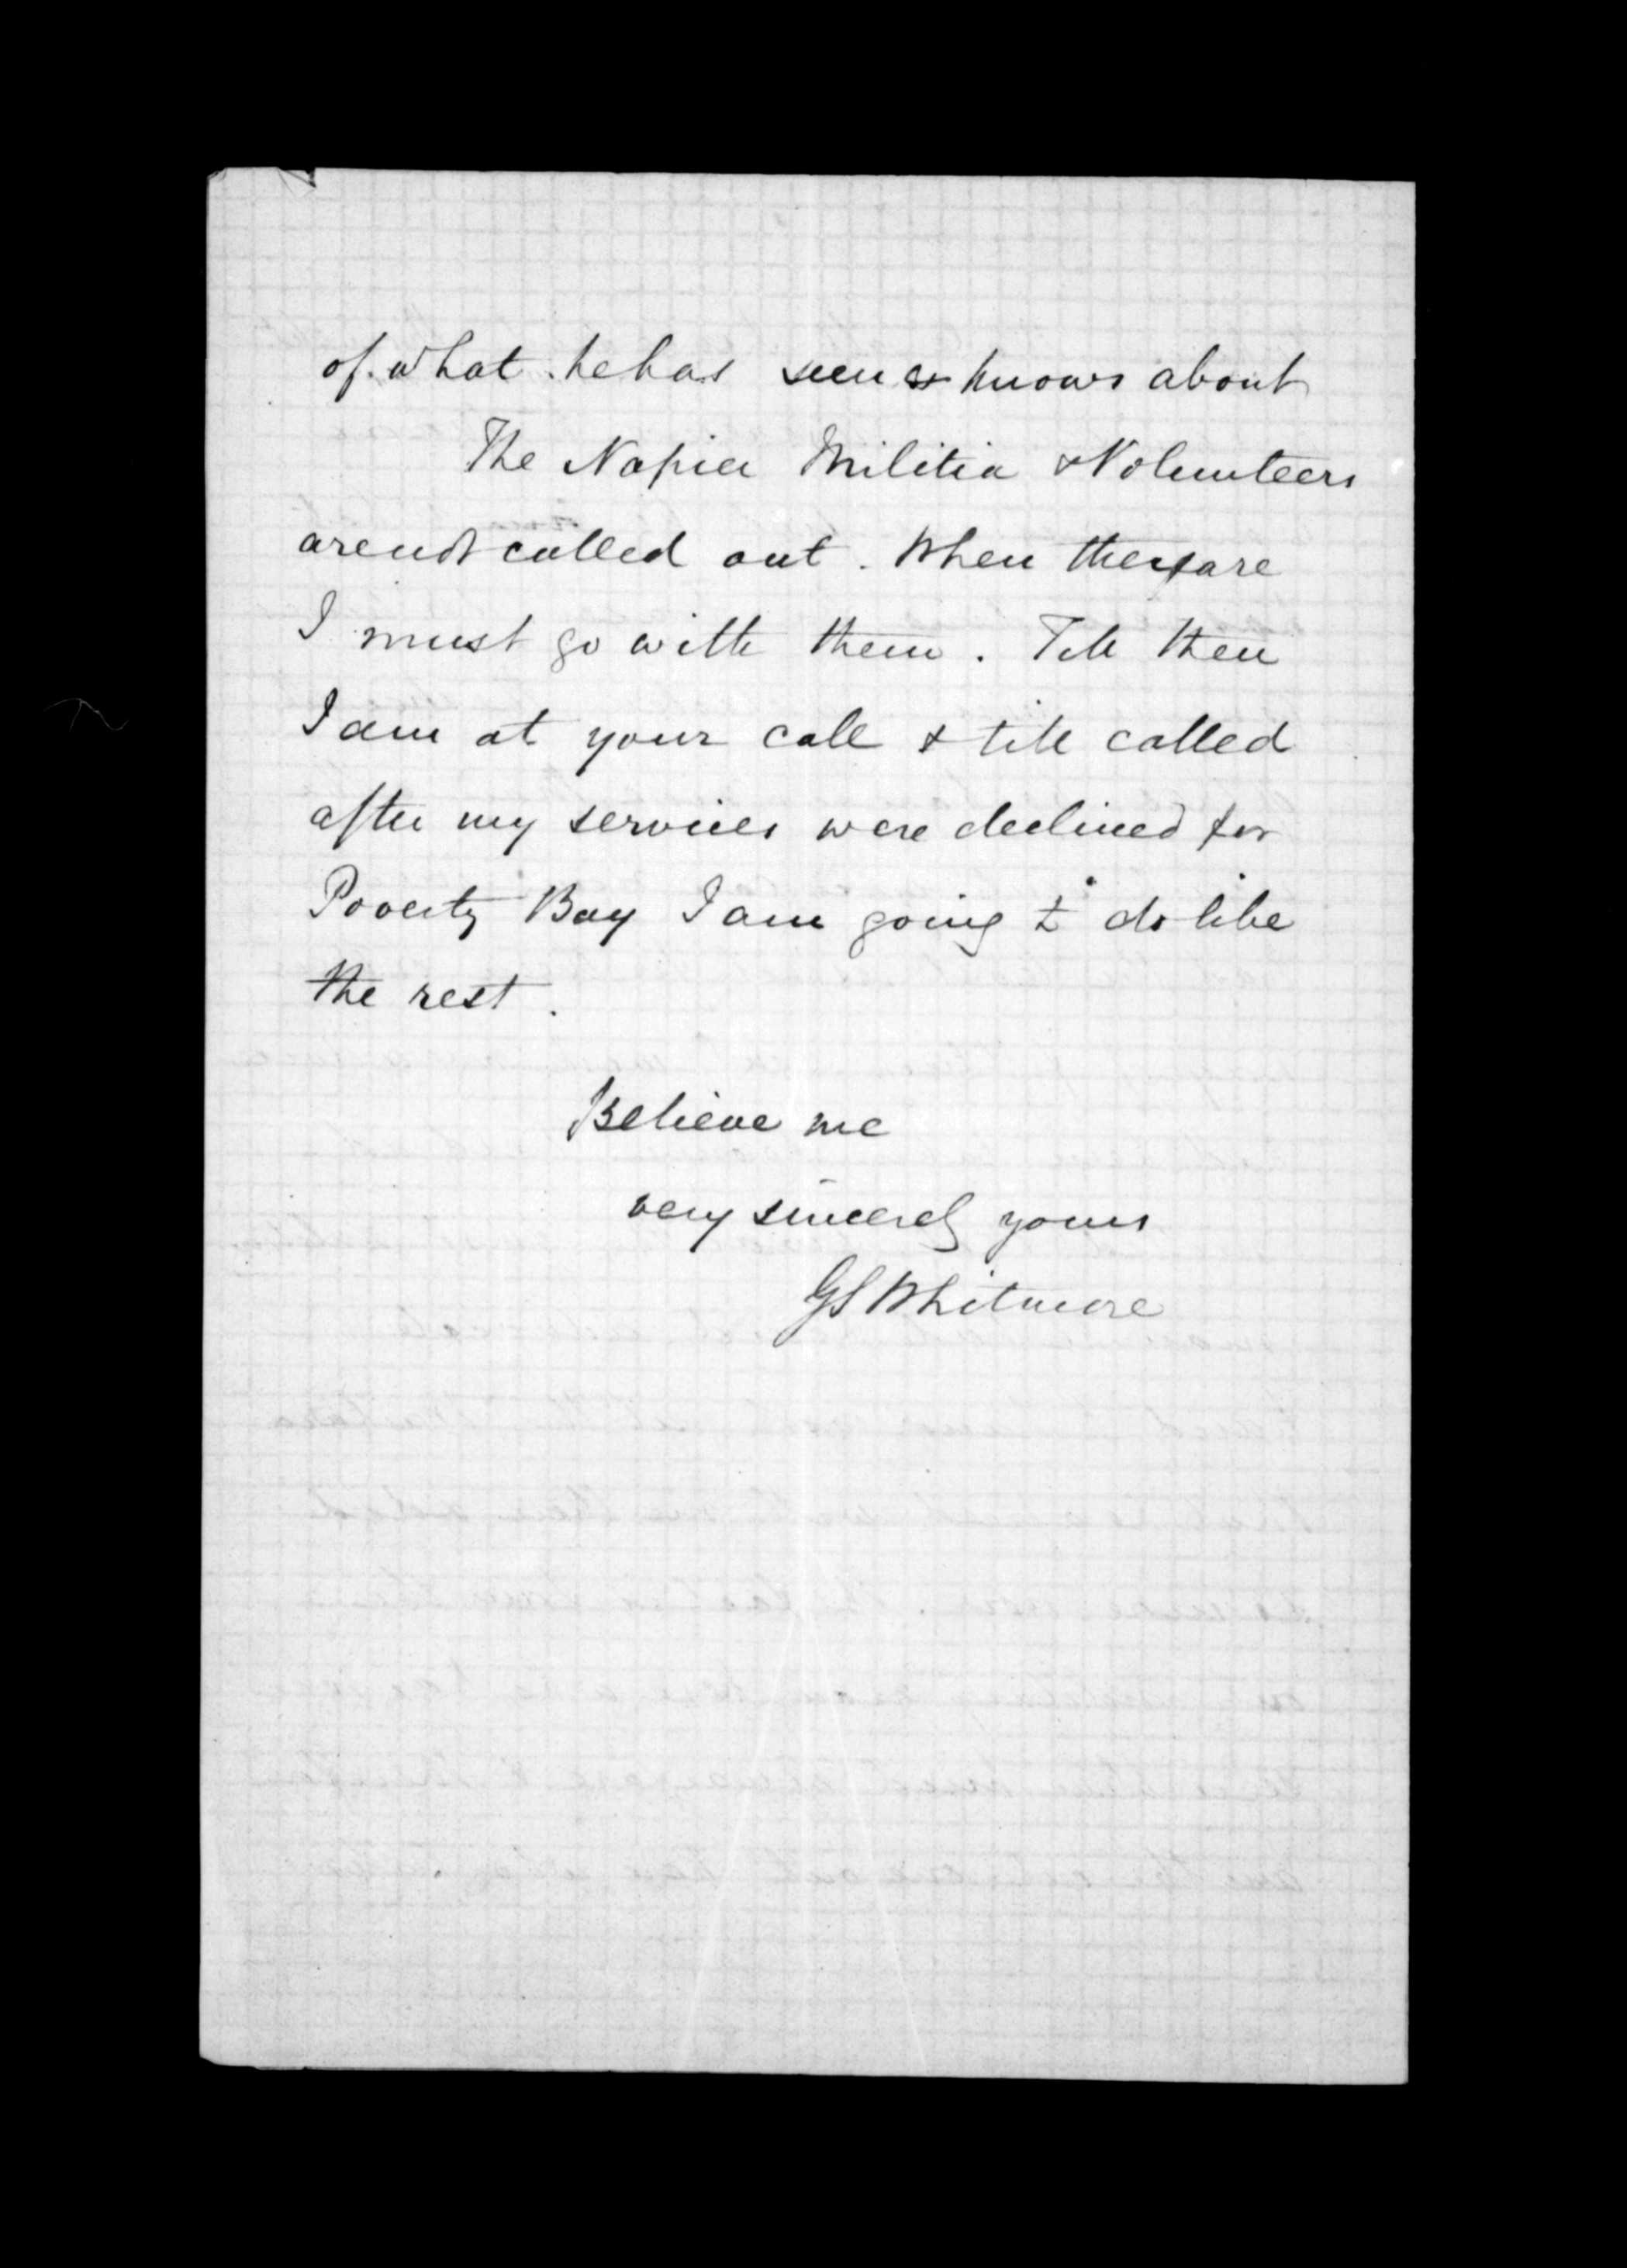 of what he has seen & knows about
The Napier Militia & Volunteers
are not called out. When they are
I must go with them. Till then
I am at your call & till called
after my services were declined for
Poverty Bay I am going to do like
the rest.
Believe me
very sincerely yours
GS Whitmore